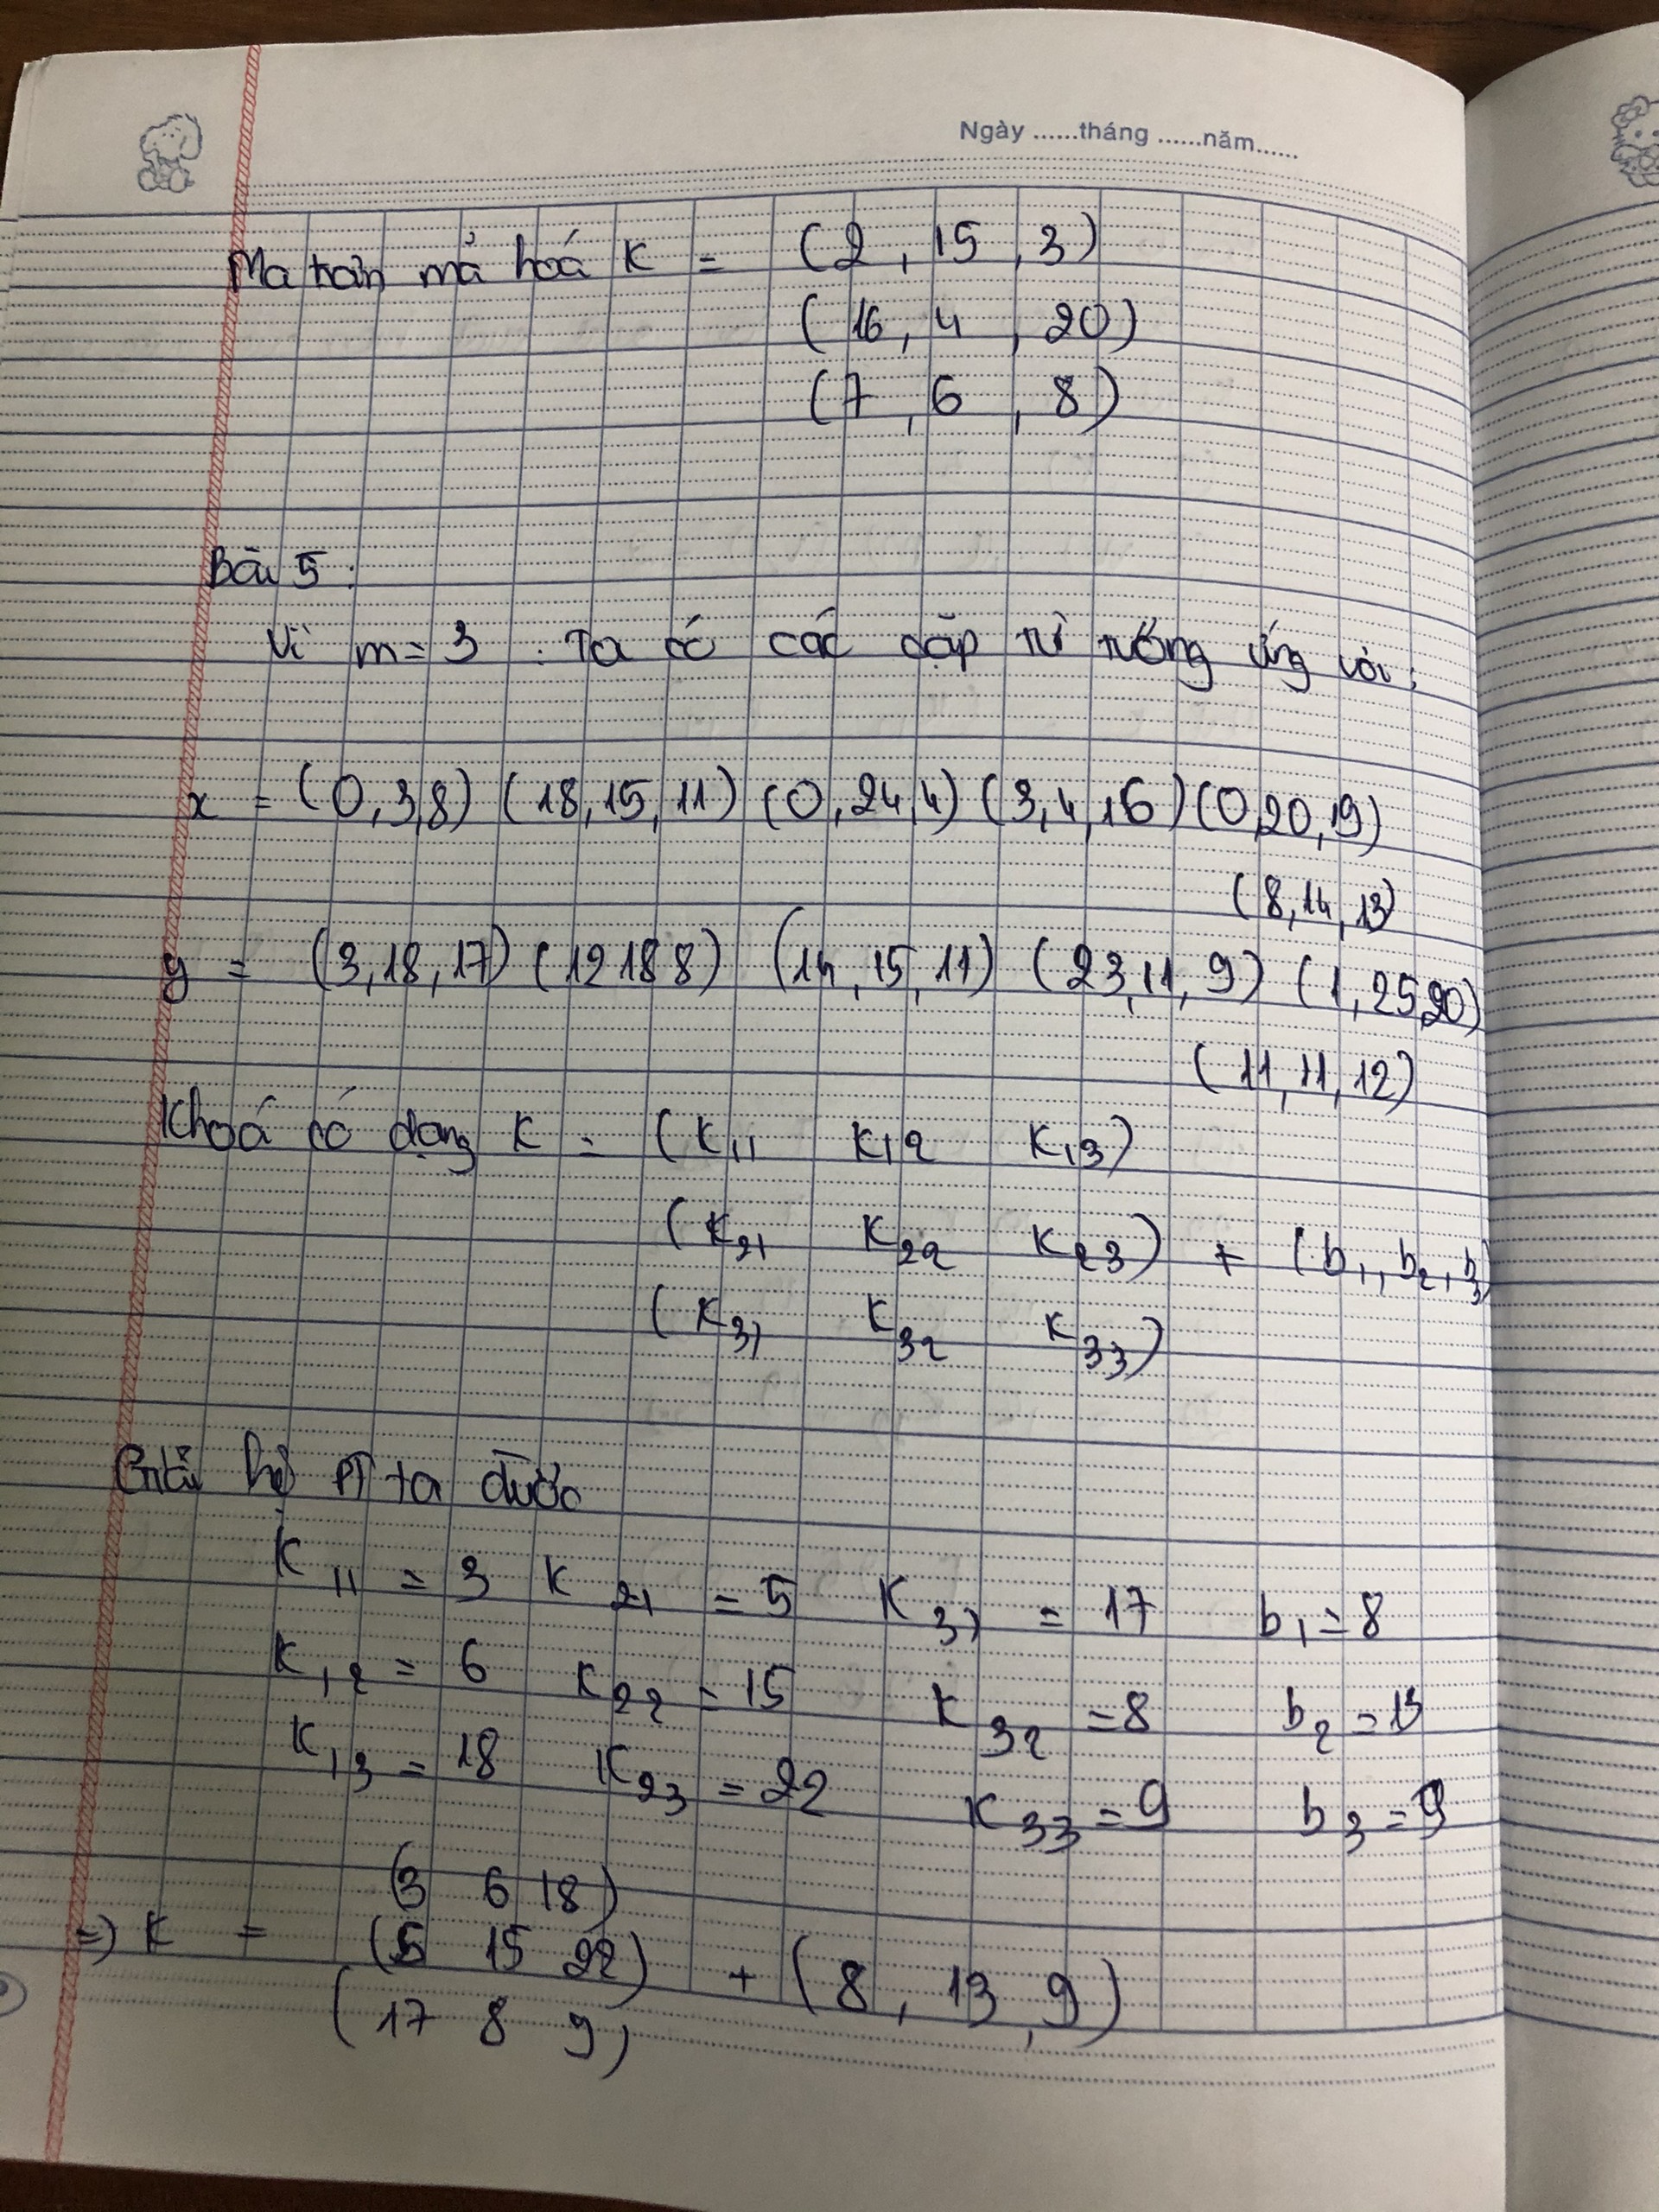 Ngày ......tháng ......năm......
Ma trận mả hoá K = (2, 15, 3)
(16, 4, 20)
(7, 6, 8)
Bài 5:
Vì m = 3 : Ta có các cặp từ tướng ứng với:
x = (0,3,8) (18,15,11) (0,24,4) (3,4,16) (0,20,19)
(8,14,13)
y = (3,18,17) (12 18 8) (14,15,11) (23,11,9) (1,25,20)
(11,11,12)
Khoá có dạng K = (K11 K12 K13)
(K21 K22 K23) + (b1, b2, b3)
(K31 K32 K33)
Giải hệ PT ta được
K11 = 3 K21 = 5 K31 = 17 b1 = 8
K12 = 6 K22 = 15 K32 = 8 b2 = 13
K13 = 18 K23 = 22 K33 = 9 b3 = 9
(3 6 18)
=) K = (5 15 22) + (8, 13, 9)
(17 8 9)